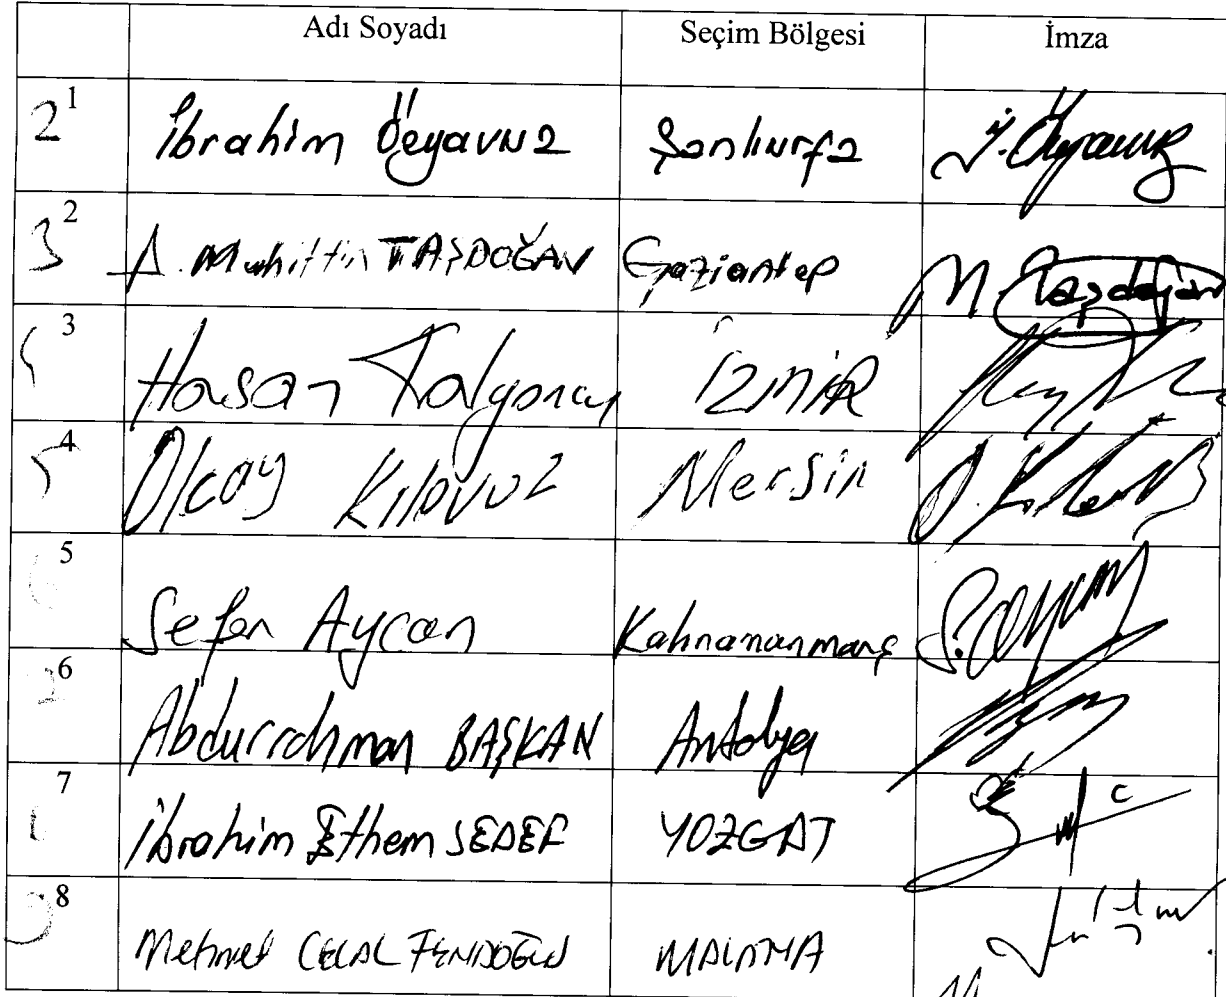 Adı Soyadı Seçim Bölgesi İmza
2 1 İbrahim Özyavuz Şanlıurfa İ. Özyavuz
3 2 A. Muhittin TAŞDOĞAN Gaziantep M. Taşdoğan
3 Hasan Kalyoncu İZMİR
4 Olcay Kılavuz Mersin O. Kılavuz
5 Sefer Aycan Kahramanmaraş S. Aycan
6 Abdurrahman BAŞKAN Antalya
7 İbrahim Ethem SEDEF YOZGAT
8 Mehmet CELAL FENDOĞLU MALATYA